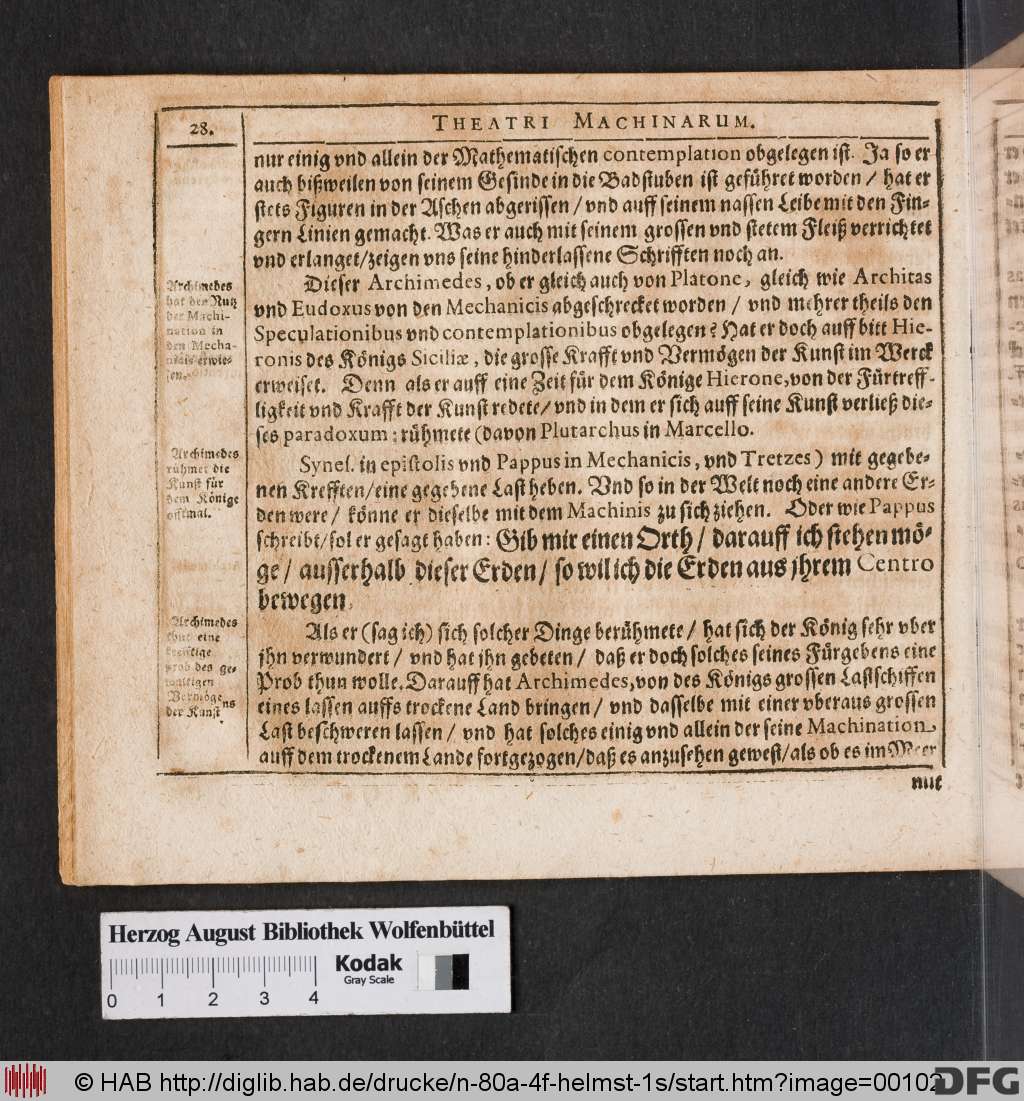 28.
THEATRI MACHINARUM.
nur einig vnd allein der Mathematischen contemplation obgelegen ist. Ja so er
auch bißweilen von seinem Gesinde in die Badstuben ist geführet worden / hat er
stets Figuren in der Aschen abgerissen / vnd auff seinem nassen Leibe mit den Fin-
gern Linien gemacht. Was er auch mit seinem grossen vnd stetem Fleiß verrichtet
vnd erlanget / zeigen vns seine hinderlassene Schrifften noch an.
Archimedes
hat den Nutz
der Machi-
nation in
den Mecha-
nicis erwie-
sen.
Dieser Archimedes, ob er gleich auch von Platone, gleich wie Architas
vnd Eudoxus von den Mechanicis abgeschrecket worden / vnd mehrer theils den
Speculationibus vnd contemplationibus obgelegen? Hat er doch auff bitt Hie-
ronis des Königs Siciliæ, die grosse Krafft vnd Vermögen der Kunst im Werck
erweiset. Denn als er auff eine Zeit für dem Könige Hierone, von der Fürtreff-
ligkeit vnd Krafft der Kunst redete / vnd in dem er sich auff seine Kunst verließ die-
ses paradoxum : rühmete (davon Plutarchus in Marcello.
Archimedes
rühmet die
Kunst für
dem Könige
offtmal.
Synes. in epistolis vnd Pappus in Mechanicis, vnd Tretzes) mit gegebe-
nen Krefften / eine gegebene Last heben. Vnd so in der Welt noch eine andere Er-
den were / könne er dieselbe mit dem Machinis zu sich ziehen. Oder wie Pappus
schreibt / sol er gesagt haben: Gib mir einen Orth / darauff ich stehen mö-
ge / ausserhalb dieser Erden / so wil ich die Erden aus jhrem Centro
bewegen.
Archimedes
thut eine
krefftige
prob des ge-
waltigen
Vermögens
der Kunst
Als er (sag ich) sich solcher Dinge berühmete / hat sich der König sehr vber
jhn verwundert / vnd hat jhn gebeten / daß er doch solches seines Fürgebens eine
Prob thun wolle. Darauff hat Archimedes, von des Königs grossen Lastschiffen
eines lassen auffs trockene Land bringen / vnd dasselbe mit einer vberaus grossen
Last beschweren lassen / vnd hat solches einig vnd allein der seine Machination
auff dem trockenem Lande fortgezogen / daß es anzusehen gewest / als ob es im Meer
mit
Herzog August Bibliothek Wolfenbüttel
Kodak
Gray Scale
0 1 2 3 4
© HAB http://diglib.hab.de/drucke/n-80a-4f-helmst-1s/start.htm?image=00102
DFG